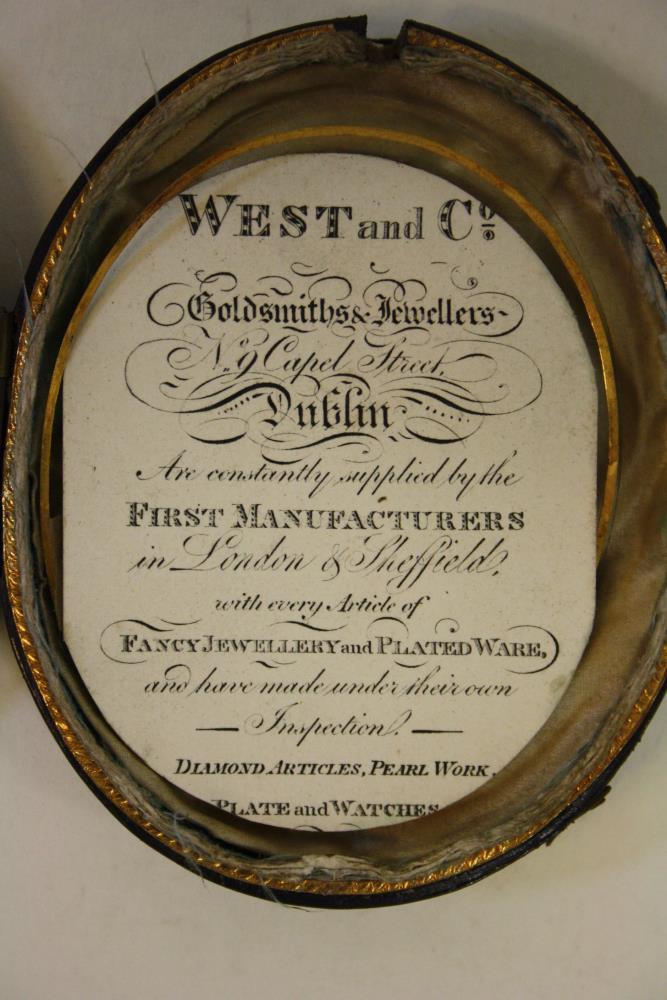 WEST and Co.
Goldsmiths & Jewellers
No. 9 Capel Street,
Dublin
Are constantly supplied by the
FIRST MANUFACTURERS
in London & Sheffield,
with every Article of
FANCY JEWELLERY and PLATED WARE,
and have made under their own
Inspection.
DIAMOND ARTICLES, PEARL WORK,
PLATE and WATCHES